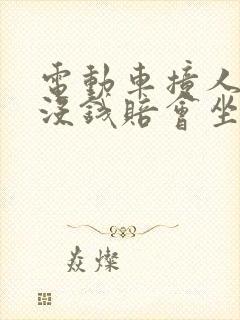 電動車撞人
沒錢賠會坐
焱燦